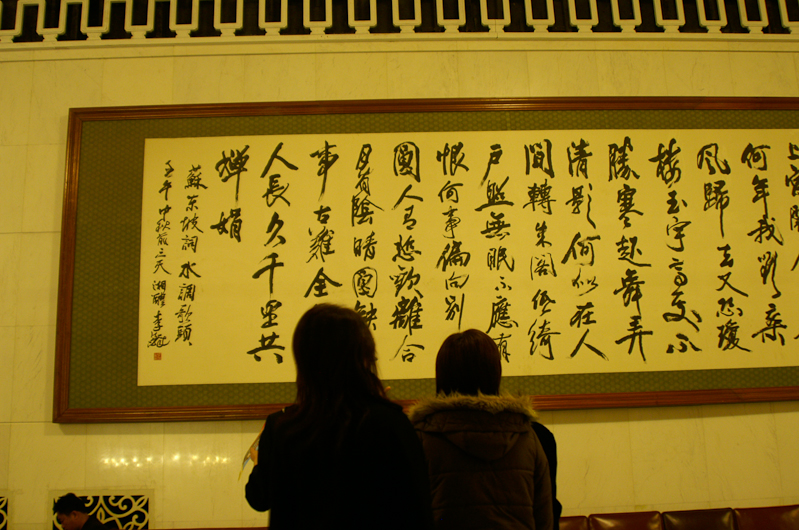 上宫闕今
何年我欲乘
風歸去又恐瓊
樓玉宇高处不
勝寒起舞弄
清影何似在人
間轉朱阁低綺
户照無眠不應有
恨何事偏向别
圓人有悲歡離合
月有陰晴圓缺
事古難全
人長久千里共
嬋娟
蘇东坡詞水調歌頭
壬午中秋前三天湘醴李鐸